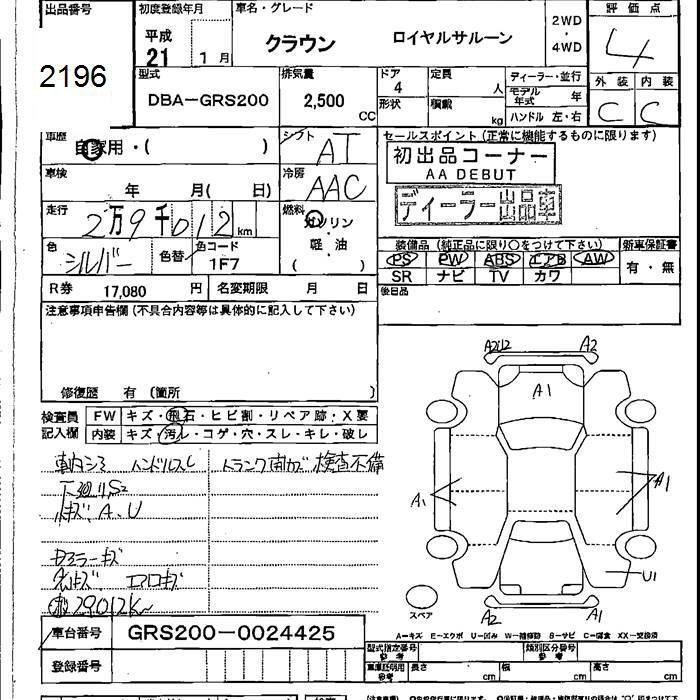 出品番号
2196
初度登録年月
平成
21 1月
車名・グレード
クラウン ロイヤルサルーン
2WD
・
4WD
評価点
4
型式
DBA-GRS200
排気量
2,500
CC
ドア
4
定員
人
形状
積載
kg
ディーラー・並行
モデル
年式
年
ハンドル 左・右
外装 内装
C C
車歴
自家用・( )
シフト
AT
セールスポイント(正常に機能するものに限ります)
初出品コーナー
AA DEBUT
ディーラー出品車
車検
年 月( 日)
冷房
AAC
走行
2万9千012 km
燃料
ガソリン
軽・油
( )
色
シルバー
色替
色コード
1F7
装備品(純正品に限り○をつけて下さい)
新車保証書
PS PW ABS エアB AW
SR ナビ TV カワ
有・無
R券 17,080 円
名変期限 月 日
後日品
注意事項申告欄(不具合内容等は具体的に記入して下さい)
修復歴 有(箇所 )
検査員
記入欄
FW キズ・飛石・ヒビ割・リペア跡・X要
内装 キズ・汚レ・コゲ・穴・スレ・キレ・破レ
車内シミ ハンドルスレ トランク 検査不備
下廻りS2
A、U
ドアミラーキズ
エアロキズ
29012Km
A2U2 A2
A1
A1
A1
U1
A2 A1
スペア
A－キズ E－エクボ U－凹み W－補修跡 S－サビ C－腐食 XX－交換済
車台番号
GRS200-0024425
登録番号
型式指定番号
参考
類別区分番号
参考
車庫証明用
参考
長さ cm 幅 cm 高さ cm